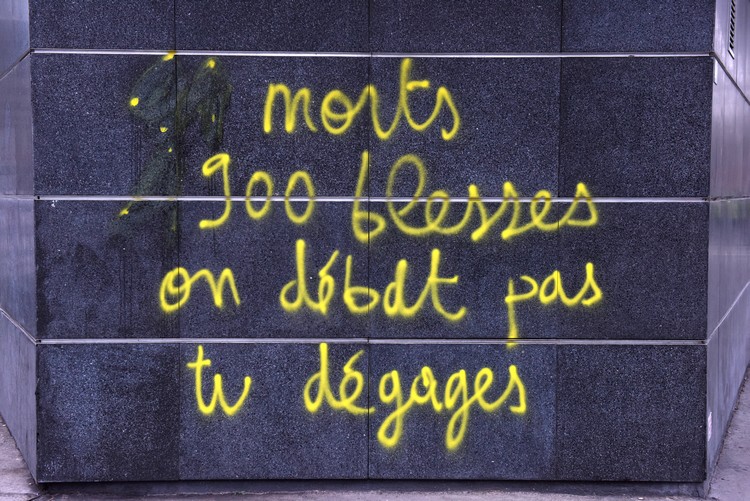 morts
900 blesses
on débat pas
tu dégages